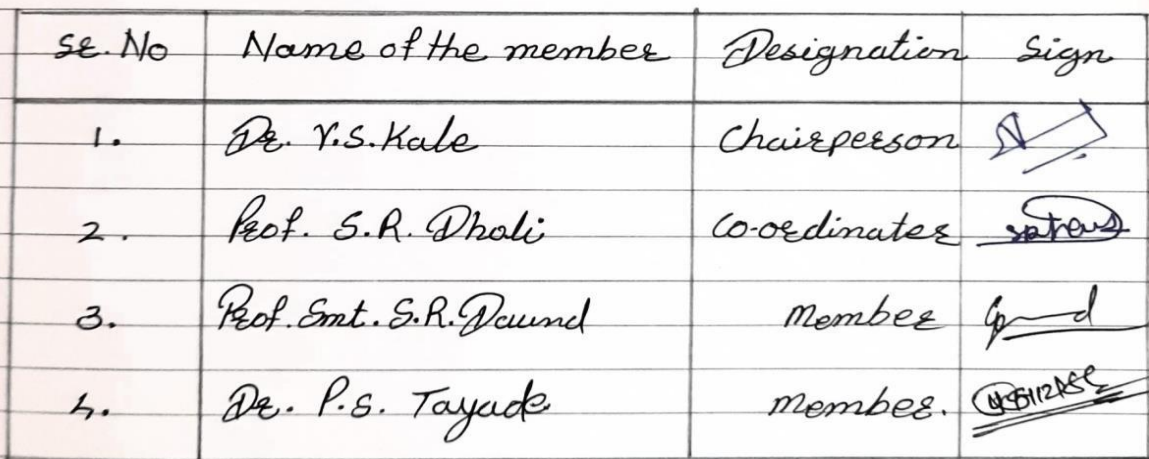 Sr. No Name of the member Designation Sign
1. Dr. Y.S. Kale Chairperson
2. Prof. S.R. Dhali Co-ordinator
3. Prof. Smt. S.R. Daund member
4. Dr. P.S. Tayade member.